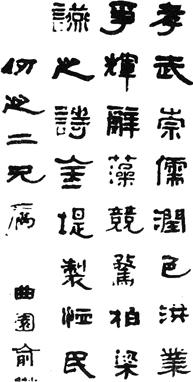 孝武崇儒潤色洪業
爭輝辭藻競騖柏梁
讌之詩金堤製恤民
何之二兄屬 曲園俞